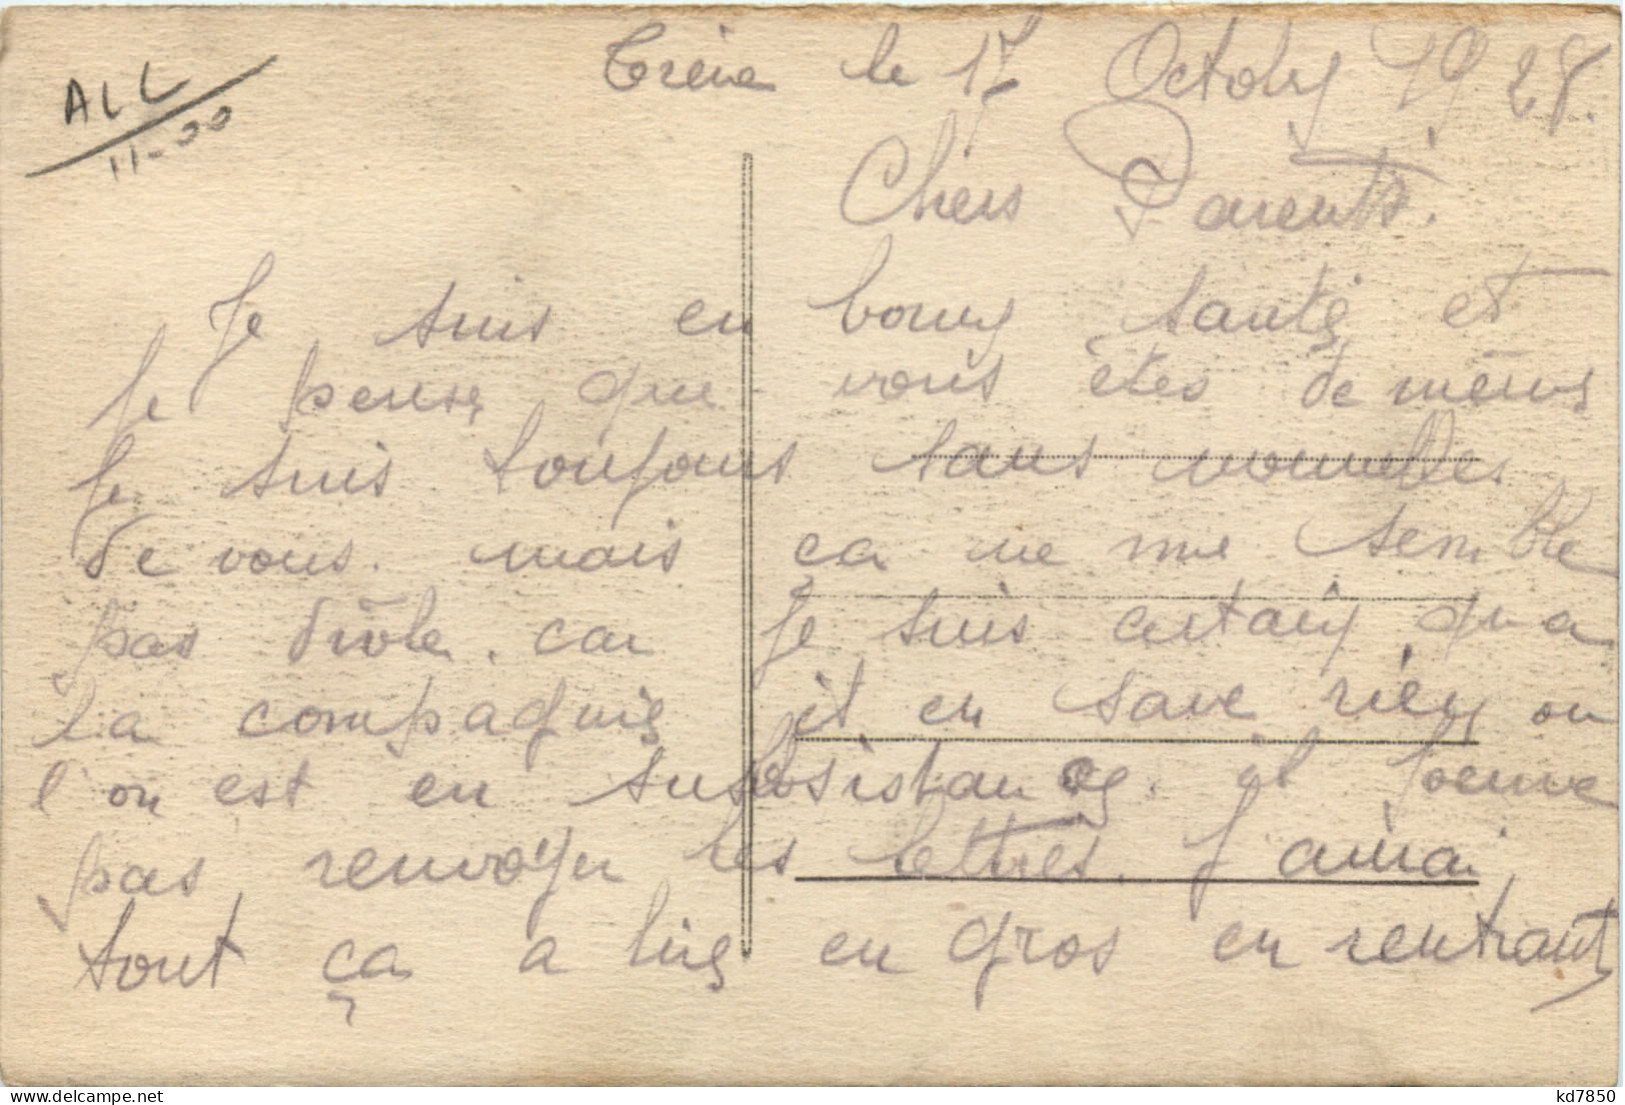 ALL
11-00
Trèive le 17 Octobre 1928.
Chers Parents.
Je suis en bonne santé et
je pense que vous êtes de même
Je suis toujours sans nouvelles
de vous. mais ca ne me semble
pas drôle. car je suis certain qua
la compagnie it en save rien ou
l'on est en subsistance. il peuve
pas renvoyer les lettres. J'aurai
tout ça a lire en gros en rentrant
kd7850